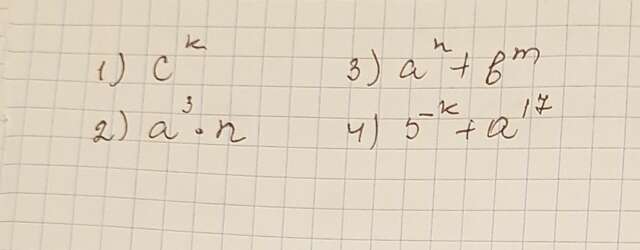 1) c^k    3) a^n + b^m
2) a^3 · n    4) 5^-k + a^17